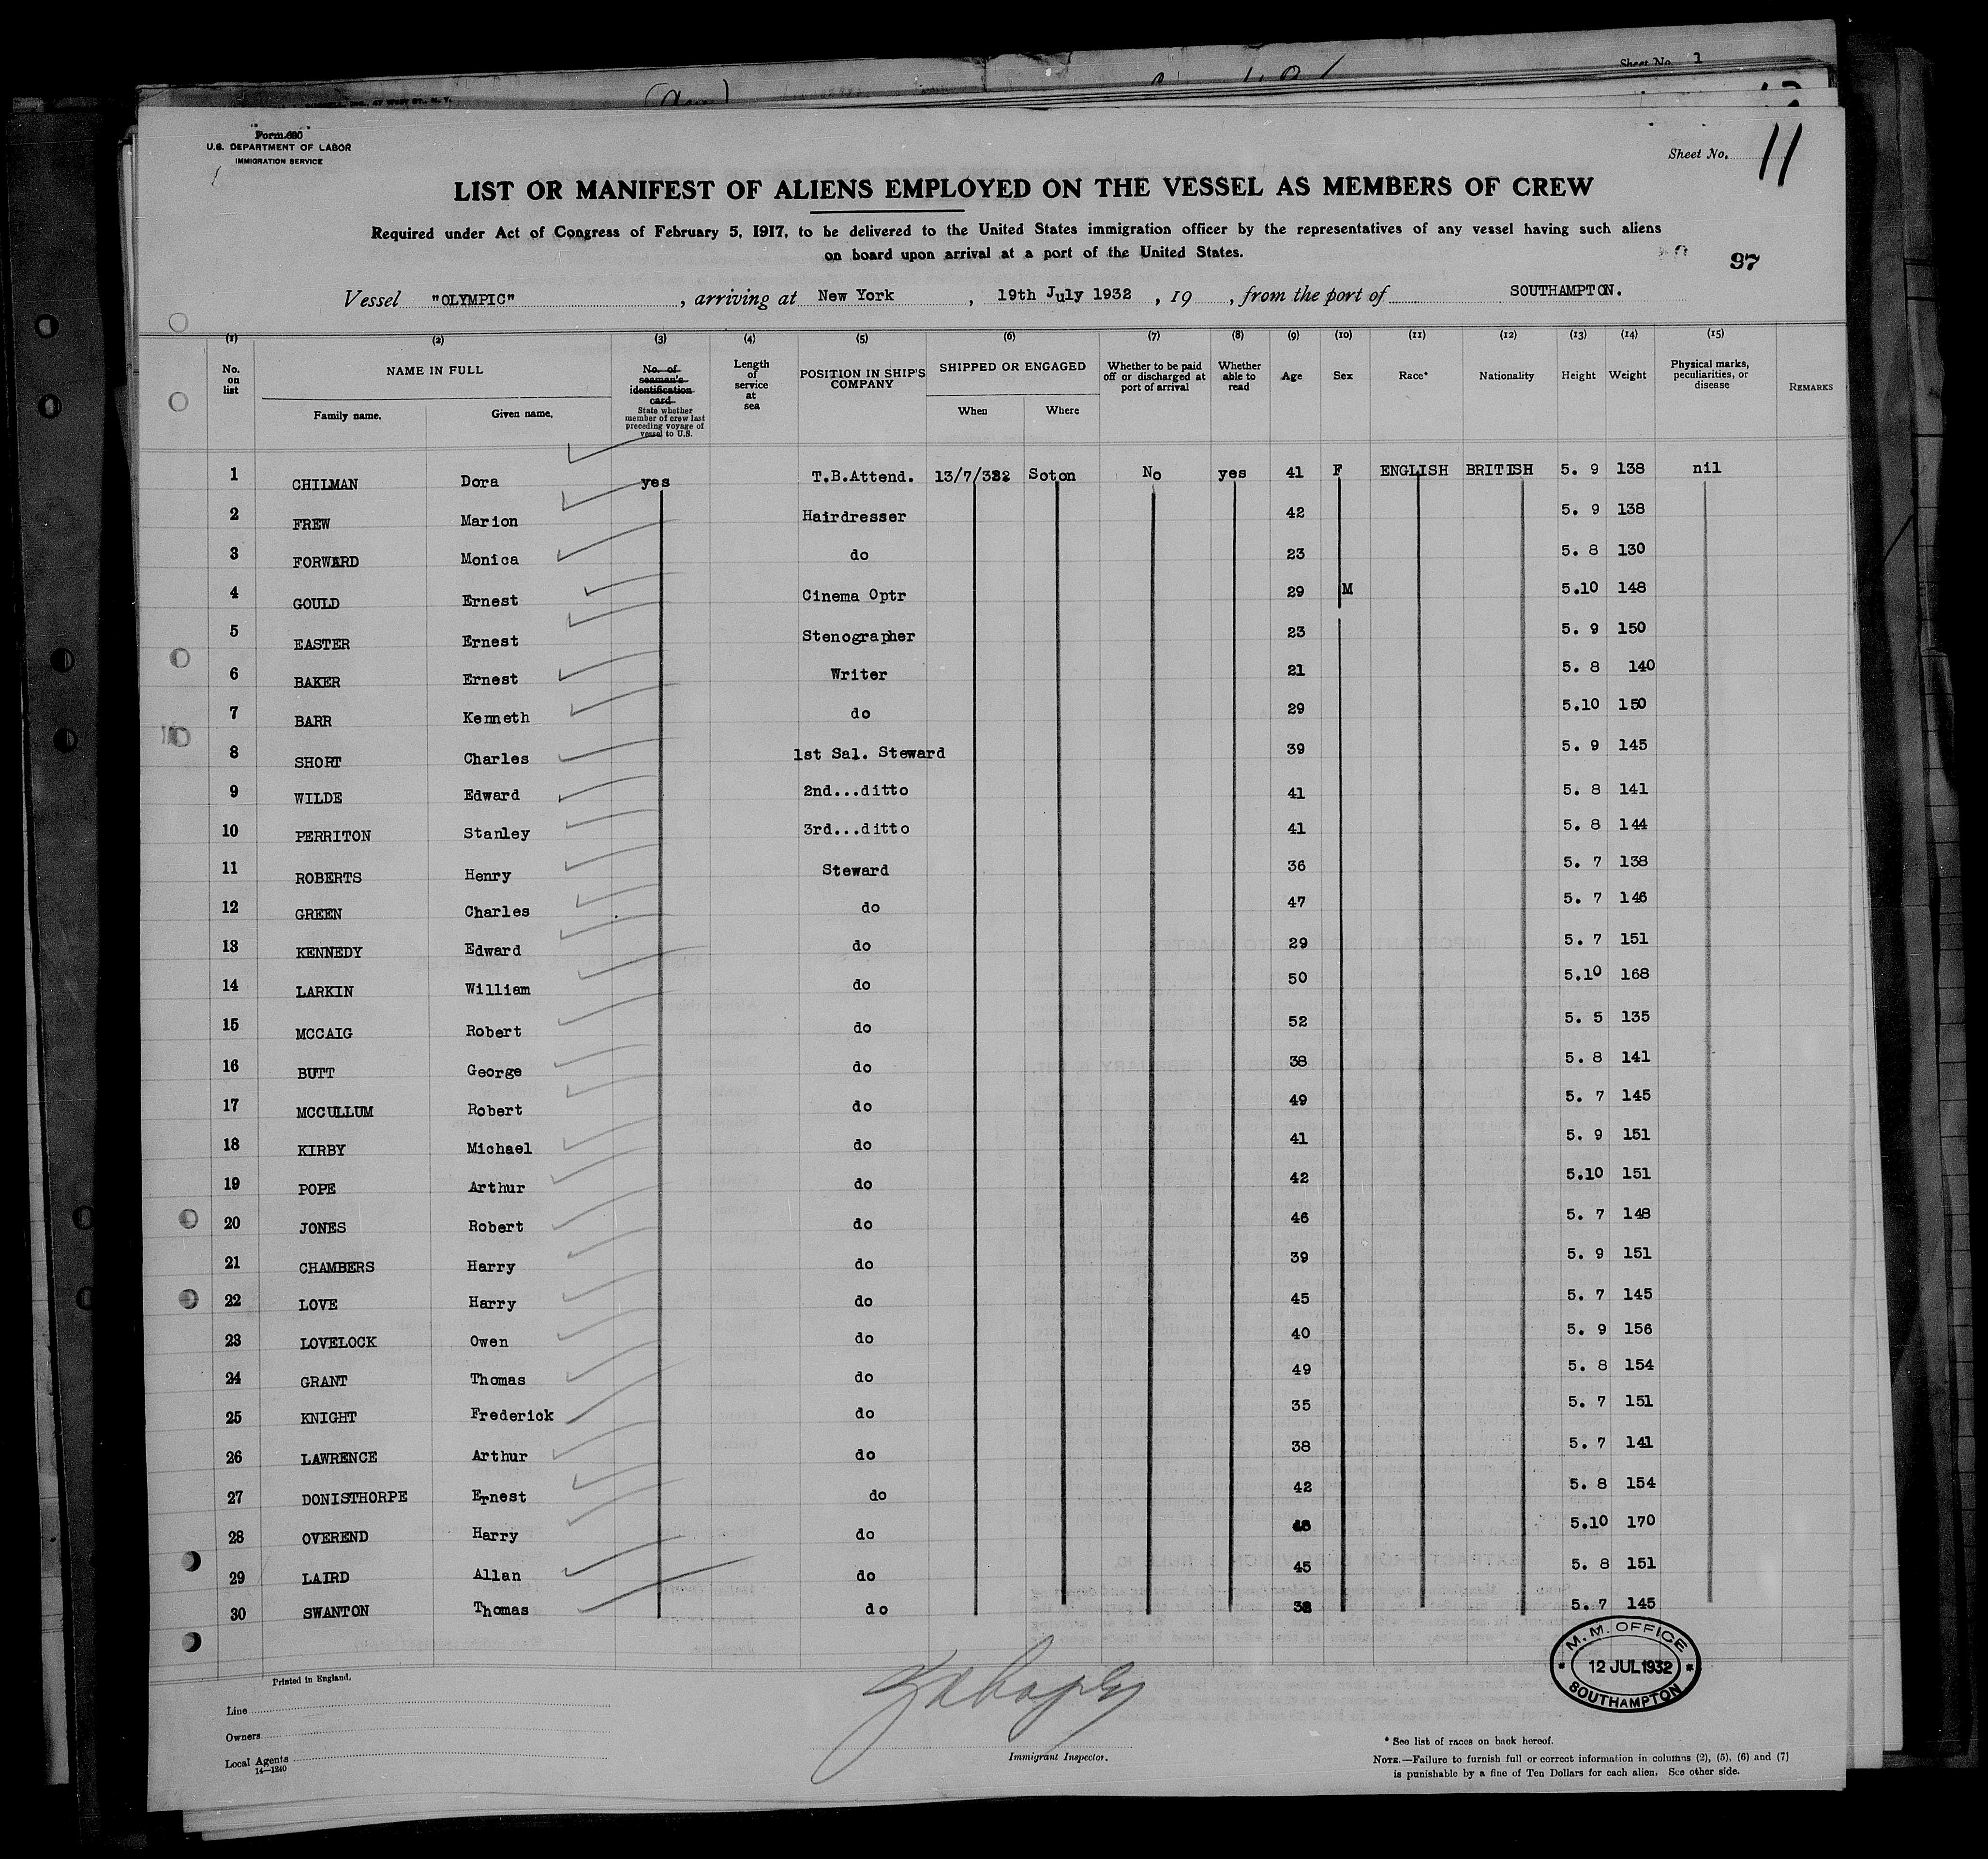 Sheet No. 1
Form 680
U.S. DEPARTMENT OF LABOR
IMMIGRATION SERVICE
Sheet No. 11
LIST OR MANIFEST OF ALIENS EMPLOYED ON THE VESSEL AS MEMBERS OF CREW
Required under Act of Congress of February 5, 1917, to be delivered to the United States immigration officer by the representatives of any vessel having such aliens
on board upon arrival at a port of the United States.
97
Vessel "OLYMPIC", arriving at New York, 19th July 1932, 19, from the port of SOUTHAMPTON.
(1) (2) (3) (4) (5) (6) (7) (8) (9) (10) (11) (12) (13) (14) (15)
No. on list NAME IN FULL Family name. Given name. No. of seaman's identification card State whether member of crew last preceding voyage of vessel to U.S. Length of service at sea POSITION IN SHIP'S COMPANY SHIPPED OR ENGAGED When Where Whether to be paid off or discharged at port of arrival Whether able to read Age Sex Race* Nationality Height Weight Physical marks, peculiarities, or disease REMARKS
1 CHILMAN Dora yes T.B.Attend. 13/7/32 Soton No yes 41 F ENGLISH BRITISH 5. 9 138 nil
2 FREW Marion Hairdresser 42 5. 9 138
3 FORWARD Monica do 23 5. 8 130
4 GOULD Ernest Cinema Optr 29 M 5.10 148
5 EASTER Ernest Stenographer 23 5. 9 150
6 BAKER Ernest Writer 21 5. 8 140
7 BARR Kenneth do 29 5.10 150
8 SHORT Charles 1st Sal. Steward 39 5. 9 145
9 WILDE Edward 2nd...ditto 41 5. 8 141
10 PERRITON Stanley 3rd...ditto 41 5. 8 144
11 ROBERTS Henry Steward 36 5. 7 138
12 GREEN Charles do 47 5. 7 146
13 KENNEDY Edward do 29 5. 7 151
14 LARKIN William do 50 5.10 168
15 MCCAIG Robert do 52 5. 5 135
16 BUTT George do 38 5. 8 141
17 MCCULLUM Robert do 49 5. 7 145
18 KIRBY Michael do 41 5. 9 151
19 POPE Arthur do 42 5.10 151
20 JONES Robert do 46 5. 7 148
21 CHAMBERS Harry do 39 5. 9 151
22 LOVE Harry do 45 5. 7 145
23 LOVELOCK Owen do 40 5. 9 156
24 GRANT Thomas do 49 5. 8 154
25 KNIGHT Frederick do 35 5. 7 151
26 LAWRENCE Arthur do 38 5. 7 141
27 DONISTHORPE Ernest do 42 5. 8 154
28 OVEREND Harry do 5.10 170
29 LAIRD Allan do 45 5. 8 151
30 SWANTON Thomas do 5. 7 145
M. M. OFFICE
12 JUL 1932
SOUTHAMPTON
Printed in England.
Line
Owners
Local Agents
14—1240
Immigrant Inspector.
* See list of races on back hereof.
NOTE.—Failure to furnish full or correct information in columns (2), (5), (6) and (7)
is punishable by a fine of Ten Dollars for each alien. See other side.